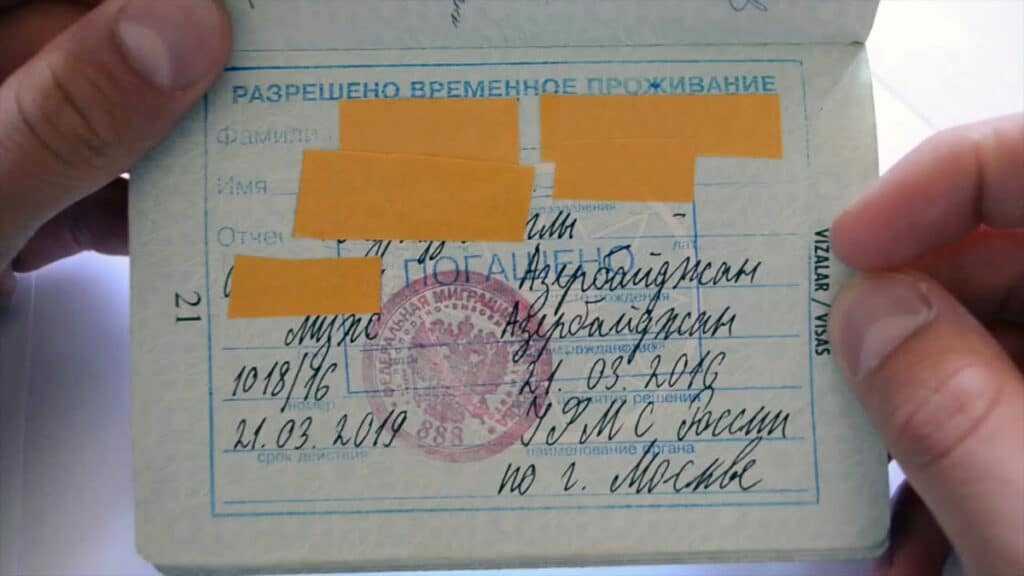 РАЗРЕШЕНО ВРЕМЕННОЕ ПРОЖИВАНИЕ
Фамили
Имя
Отчес
глы
ПОГАШЕНО
Азербайджан
рождения
муж Азербайджан
гражданство
1018/16 21.03.2016
номер принятия решения
21.03.2019 УФМС России
срок действия наименование органа
по г. Москве
ФЕДЕРАЛЬНАЯ МИГРАЦИ
888
21
VIZALAR / VISAS